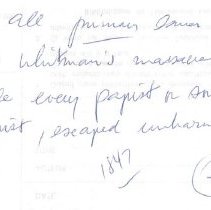 all primary
Whitman's massacre
every papist or
escaped unharm
1847